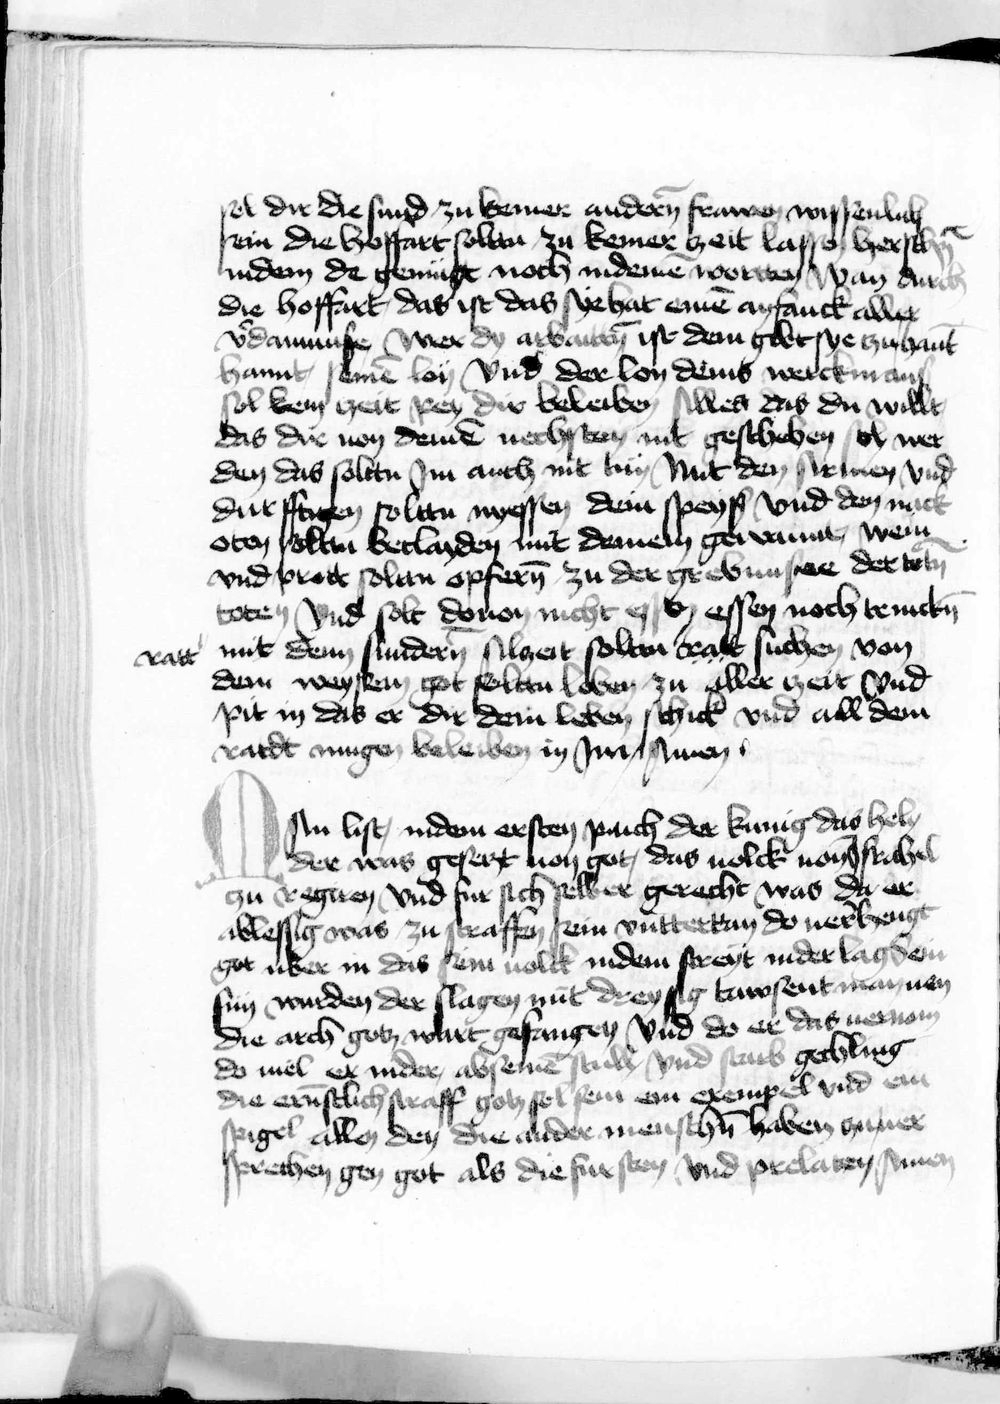 sol dir die sund zu keiner andern̄ frawen wissenlich
sein die hoffart soltu zu keiner zeit lassen herschn̄
in dem de gemüt noch in deinē wortten Wan durch
die hoffart das ist das sye hat einē anfanck aller
v̄damnuse Wer dy arbaittn̄ ist dem gibt sye zuhant
hannt seinē lon Vnd der lon deins werckmans
sol kein zeit pey dir beleiben Alles das du willt
das dir von deinē nechsten nit geschehen sol wer
den das soltu Im auch nit tun Mit den Armen vnd
durfftigen soltu nyessen dein speyß vnd den nack
oten soltu beclayden mit deinem gewannt wein
vnd prott soltu opfern̄ zu der grebnusse der totn̄
toten Vnd solt dovon nicht essen noch trinckn̄
ratt mit denn sundern̄ Alzeit soltu ratt suchen von
dem weyssem got soltu loben zu aller zeit Vnd
pit in das er dir dein leben schick vnd all dein
rardt mugen beleiben in Im Amen
Man list in dem ersten puch der kunig das hely
der was gesetzt von got das volck von Israhel
zu regiren Vnd fur sich selber gerecht was da er
ablessig was zu straffen sein vnttertan do verhengt
got uber in das sein volck in dem streyt nider lag Sein
sun wurden der slagen mit dreysig tawsent mannen
die arch gotz wart gefangen Vnd do er das vernom
do viel er nider ab seinē stull vnd starb gechling
die ern̄stlich straff gotz sol sein ein exempel vnd ein
spigel allen den die ander menschn̄ haben zu ver
sprechen gen got als die fursten Vnd prelaten Amen